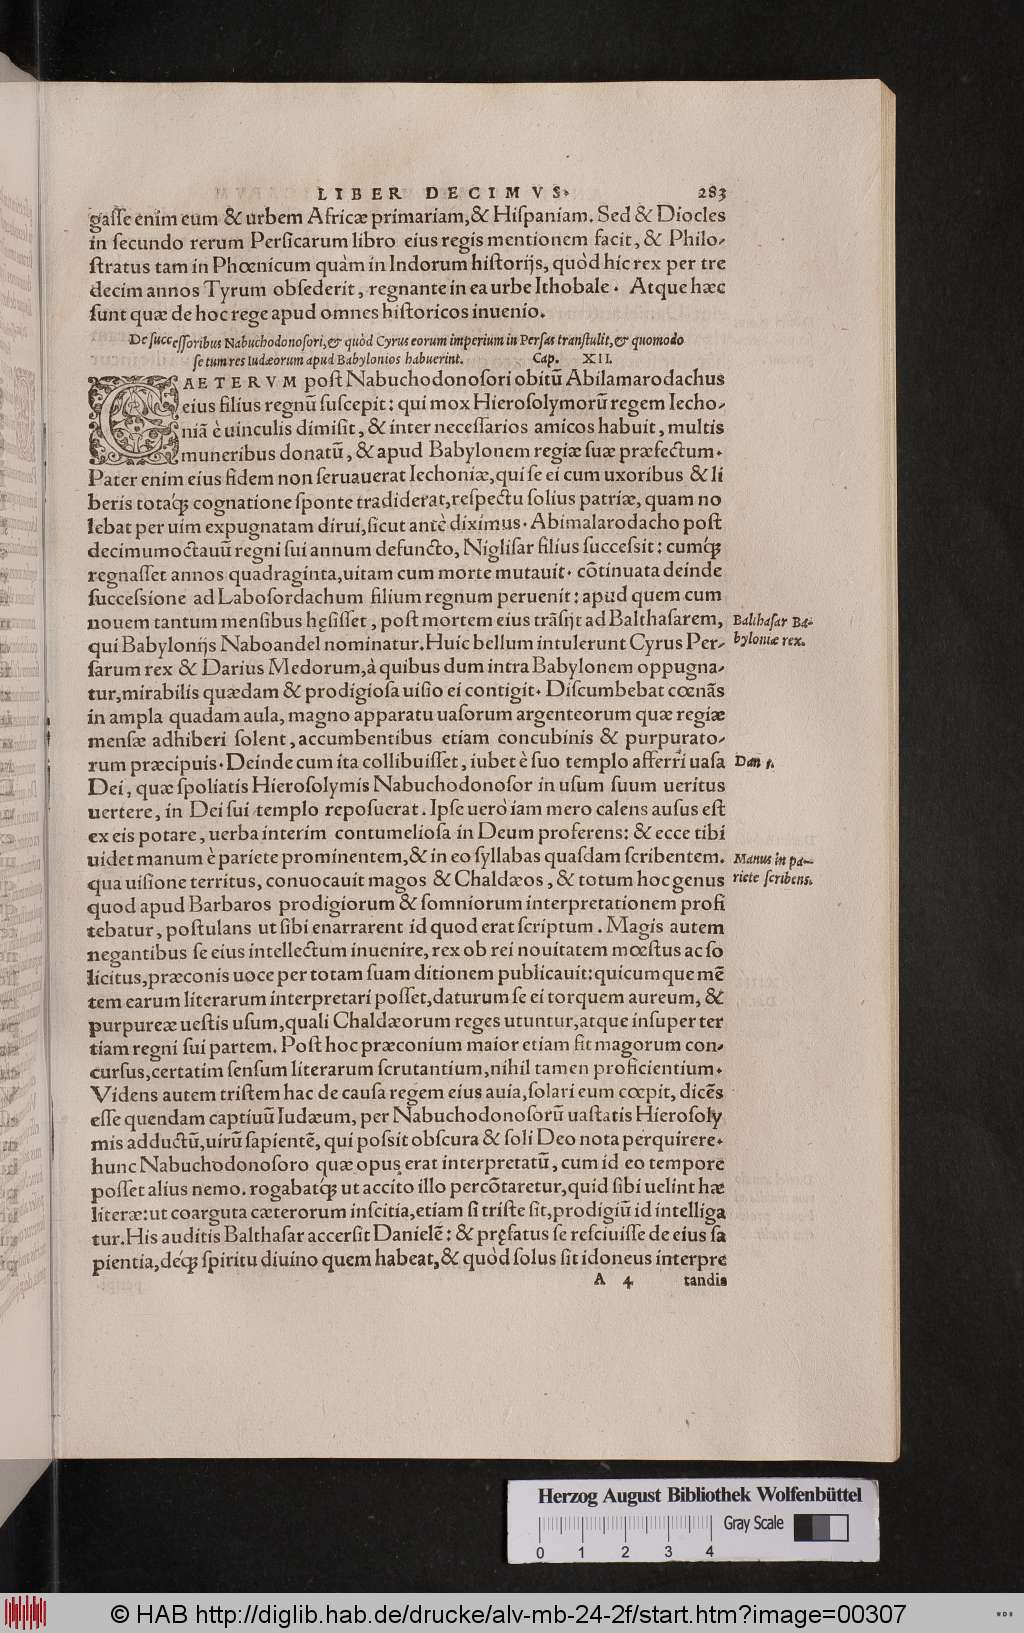 LIBER DECIMVS. 283
gaſſe enim eum & urbem Africæ primariam,& Hiſpaniam. Sed & Diocles
in ſecundo rerum Perſicarum libro eius regis mentionem facit, & Philo-
ſtratus tam in Phœnicum quàm in Indorum hiſtorijs, quòd hic rex per tre
decim annos Tyrum obſederit, regnante in ea urbe Ithobale. Atque hæc
ſunt quæ de hoc rege apud omnes hiſtoricos inuenio.
De ſucceſſoribus Nabuchodonoſori,& quòd Cyrus eorum imperium in Perſas tranſtulit,& quomodo
ſe tum res Iudæorum apud Babylonios habuerint. Cap. XII.
CAETERVM poſt Nabuchodonoſori obitũ Abilamarodachus
eius filius regnũ ſuſcepit: qui mox Hieroſolymorũ regem Iecho-
niã è uinculis dimiſit, & inter neceſſarios amicos habuit, multis
muneribus donatũ, & apud Babylonem regiæ ſuæ præfectum.
Pater enim eius fidem non ſeruauerat Iechoniæ,qui ſe ei cum uxoribus & li
beris totaq́ꝫ cognatione ſponte tradiderat,reſpectu ſolius patriæ, quam no
lebat per uim expugnatam dirui,ſicut antè diximus. Abimalarodacho poſt
decimumoctauũ regni ſui annum defuncto, Nigliſar filius ſucceſsit: cumq́ꝫ
regnaſſet annos quadraginta,uitam cum morte mutauit. cõtinuata deinde
ſucceſsione ad Laboſordachum filium regnum peruenit: apud quem cum
nouem tantum menſibus hęſiſſet, poſt mortem eius trãſijt ad Balthaſarem,
Balthaſar Ba-
byloniæ rex.
qui Babylonijs Naboandel nominatur. Huic bellum intulerunt Cyrus Per-
ſarum rex & Darius Medorum,à quibus dum intra Babylonem oppugna-
tur,mirabilis quædam & prodigioſa uiſio ei contigit. Diſcumbebat cœnãs
in ampla quadam aula, magno apparatu uaſorum argenteorum quæ regiæ
menſæ adhiberi ſolent, accumbentibus etiam concubinis & purpurato-
rum præcipuis. Deinde cum ita collibuiſſet, iubet è ſuo templo afferri uaſa
Dan 5.
Dei, quæ ſpoliatis Hieroſolymis Nabuchodonoſor in uſum ſuum ueritus
uertere, in Dei ſui templo repoſuerat. Ipſe uerò iam mero calens auſus eſt
ex eis potare, uerba interim contumelioſa in Deum proferens: & ecce tibi
uidet manum è pariete prominentem,& in eo ſyllabas quaſdam ſcribentem.
Manus in pa-
riete ſcribens.
qua uiſione territus, conuocauit magos & Chaldæos, & totum hoc genus
quod apud Barbaros prodigiorum & ſomniorum interpretationem profi
tebatur, poſtulans ut ſibi enarrarent id quod erat ſcriptum. Magis autem
negantibus ſe eius intellectum inuenire, rex ob rei nouitatem mœſtus ac ſo
licitus,præconis uoce per totam ſuam ditionem publicauit: quicumque mẽ
tem earum literarum interpretari poſſet,daturum ſe ei torquem aureum, &
purpureæ ueſtis uſum,quali Chaldæorum reges utuntur,atque inſuper ter
tiam regni ſui partem. Poſt hoc præconium maior etiam fit magorum con-
curſus,certatim ſenſum literarum ſcrutantium,nihil tamen proficientium.
Videns autem triſtem hac de cauſa regem eius auia,ſolari eum cœpit, dicẽs
eſſe quendam captiuũ Iudæum, per Nabuchodonoſorũ uaſtatis Hieroſoly
mis adductũ,uirũ ſapientẽ, qui poſsit obſcura & ſoli Deo nota perquirere.
hunc Nabuchodonoſoro quæ opus erat interpretatũ, cum id eo tempore
poſſet alius nemo. rogabatq́ꝫ ut accito illo percõtaretur,quid ſibi uelint hæ
literæ: ut coarguta cæterorum inſcitia,etiam ſi triſte ſit,prodigiũ id intelliga
tur. His auditis Balthaſar accerſit Danielẽ: & pręfatus ſe reſciuiſſe de eius ſa
pientia,déq́ꝫ ſpiritu diuino quem habeat,& quòd ſolus ſit idoneus interpre
A 4 tandis
Herzog August Bibliothek Wolfenbüttel
Gray Scale
0 1 2 3 4
© HAB http://diglib.hab.de/drucke/alv-mb-24-2f/start.htm?image=00307